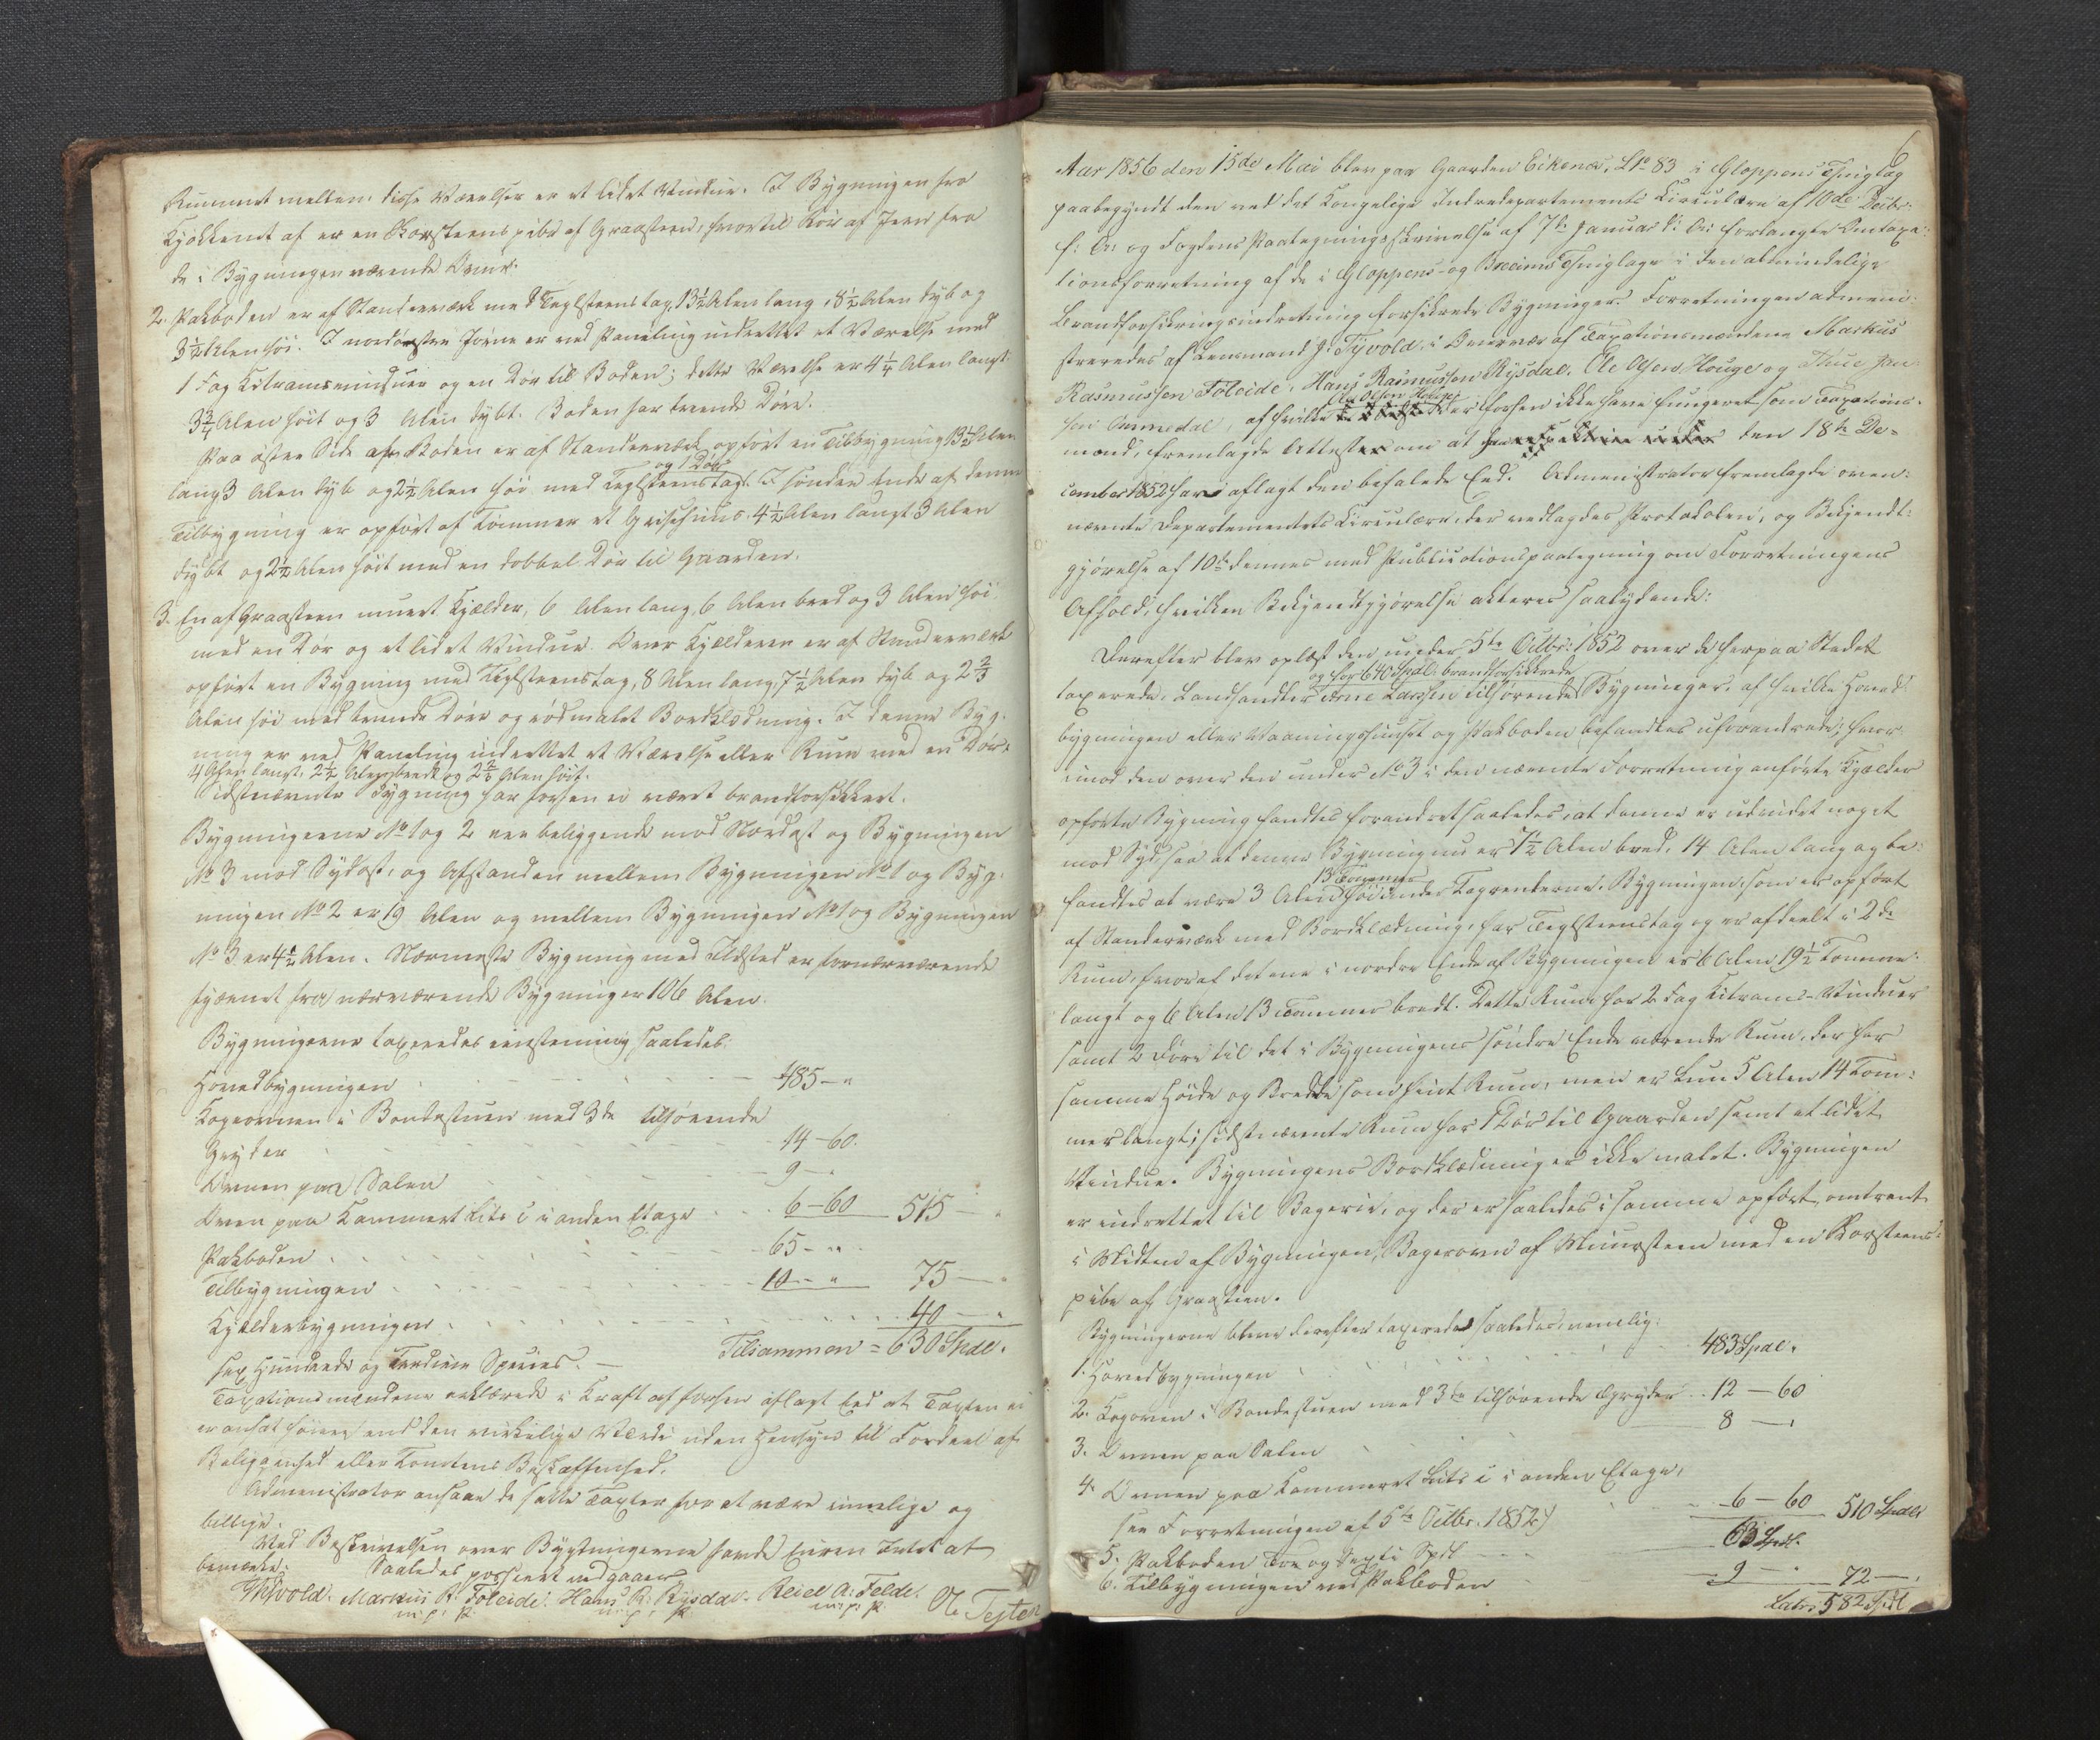 Rummet mellem disse Værelser er et lidet Vindue. I Bygningen fra
Kjøkkenet af er en Skorsteenspibe af Graasteen, hvortil Rør af Jern fra
de i Bygningen værende Ovne.
2. Pakboden er af Standerværk med Teglsteenstag, 13½ Alen lang, 8½ Alen dyb og
3½ Alen høi. I nordøstre Hjørne er ved Paneling indrettet et Værelse med
1 Fag Kitrams vinduer og en Dør til Boden; dette Værelse er 4¼ Alen langt
3¾ Alen høit og 3 Alen dybt. Boden har tvende Døre.
Paa østre Side af Boden er af Standerværk opført en Tilbygning 13½ Alen
og 1 Dør
lang 3 Alen dyb og 2½ Alen høi med Teglsteenstag. I søndre Ende af denne
Tilbygning er opført af Tømmer et Griisehuus 4½ Alen langt 3 Alen
dybt og 2½ Alen høit med en dobbel Dør til Gaarden.
3. En af Graasteen muret Kjælder, 6 Alen lang, 6 Alen bred og 3 Alen høi
med en Dør og et lidet Vindue. Over Kjælderen er af Standerværk
opført en Bygning med Teglsteenstag, 8 Alen lang, 7½ Alen dyb og 2⅔
Alen høi med tvende Døre og rødmalet Bordklædning. I denne Byg-
ning er ved Paneling indrettet et Værelse eller Rum med en Dør.
4 Alen langt, 2½ Alen bredt og 2⅔ Alen høit.
Sidstnævnte Bygning har forhen ei været brandforsikkret.
Bygningerne No 1 og 2 ere beliggende mod Nordost og Bygningen
No 3 mod Sydost, og Afstanden mellem Bygningen No 1 og Byg-
ningen No 2 er 19 Alen og mellem Bygningen No 1 og Bygningen
No 3 er 4½ Alen. Nærmeste Bygning med Ildsted er
fjernet fra nærværende Bygninger 106 Alen.
Bygningerne taxeredes eenstemmig saaledes:
Hovedbygningen 485 - "
Kogeovnen i Bondestuen med 3de tilhørende
Gryder 14 - 60.
Ovnen paa Salen 9 - "
Ovnen paa Kammeret Litr c i anden Etage 6 - 60 515 - "
Pakboden 65 - "
Tilbygningen 10 - " 75 - "
Kjælderbygningen 40 - "
Tilsammen = 630 Spdl.
sex Hundrede og Tredive Species. —
Taxationsmændene erklærede i Kraft af forhen aflagt Eed at Taxten ei
er ansat høiere end den virkelige Værdi uden Hensyn til Fordeel af
Beliggenhed eller Tomtens Beskaffenhed.
Administrator ansaae de satte Taxter for at være rimelige og
billige.
Ved Beskrivelsen over Bygningerne havde Eieren Intet at
bemærke. Saaledes passeret vedgaaer
Tÿvold. Markus R. Føleide. Hans R. Rÿsdal. Reiel A. Felde. Ole Tejten
m. p. P. m. p. P. m. p. P.
6
Aar 1856 den 15de Mai blev paa Gaarden Eikenæs, L No 83 i Gloppens Thinglag
paabegyndt den ved det Kongelige Indredepartements Circulære af 10de Decbr.
f. A. og Fogdens Paategningsskrivelse af 7de Januar d. A. forlangte Omtaxa-
tionsforretning af de i Gloppens og Breims Thinglage i den almindelige
Brandforsikringsindretning forsikrede Bygninger. Forretningen admini-
streredes af Lensmand J. Tÿvold i Overvær af Taxationsmændene Markus
Rasmussen Føleide, Hans Rasmussen Rÿsdal, Ole Olsen Hauge og Thue Jan-
Ole Olsen Hauge
sen Ommedal, af hvilke der forhen ikke have fungeret som Taxations-
mænd, fremlagde Attest om at den 18de De-
cember 1852 have aflagt den befalede Eed. Administrator fremlagde oven-
nævnte Departementets Circulære, der vedlagdes Protokolen, og Bekjendt-
gjørelse af 10de dennes med Publicationspaategning om Forretningens
Afhold, hvilken Bekjendtgjørelse akteres saalydende:
Derefter blev oplæst den under 5te Octbr. 1852 over de herpaa Stedet
og for 640 Spdl. brandforsikkrede
taxerede, Landhandler Arne Larsen tilhørende Bygninger, af hvilke Hoved-
bygningen eller Vaaningshuset og Pakboden befandtes uforandrede, hvor-
imod den over den under No 3 i den nævnte Forretning anførte Kjælder
opførte Bygning fandtes forandret saaledes, at denne er udvidet noget
mod Syd, saa at denne Bygning nu er 7½ Alen bred, 14 Alen lang og be-
13 Tommer
fandtes at være 3 Alen høi under Tagrenderne. Bygningen, som er opført
af Standerværk med Bordklædning, har Teglsteenstag og er afdeelt i 2de
Rum, hvoraf det ene i nordre Ende af Bygningen er 6 Alen 19½ Tomme
langt og 6 Alen 13 Tommer bredt. Dette Rum har 2 Fag Kitrams-Vinduer
samt 2 Døre til det i Bygningens søndre Ende værende Rum, der har
samme Høide og Bredde som hiint Rum, men er kun 5 Alen 14 Tom-
mer langt; sidstnævnte Rum har 1 Dør til Gaarden samt et lidet
Vindue. Bygningens Bordklædning er ikke malet. Bygningen
er indrettet til Bagerie, og der er saaledes i samme opført omtrent
i Midten af Bygningen, Bagerovn af Muursteen med en Skorsteens-
pibe af Graasteen.
Bygningerne bleve derefter taxerede saaledes, nemlig:
1. Hovedbygningen 483 Spdl.
2. Kogeovn i Bondestuen med 3de tilhørende Gryder 12 - 60
3. Ovnen paa Salen 8 - "
4. Ovnen paa Kammeret Litr c i anden Etage,
(see Forretningen af 5te Octbr. 1852) 6 - 60 510 Spdl
5. Pakboden Tre og Sexti Spdl 63 Spdl.
6. Tilbygningen ved Pakboden 9 - " 72 - "
Latus 582 Spdl